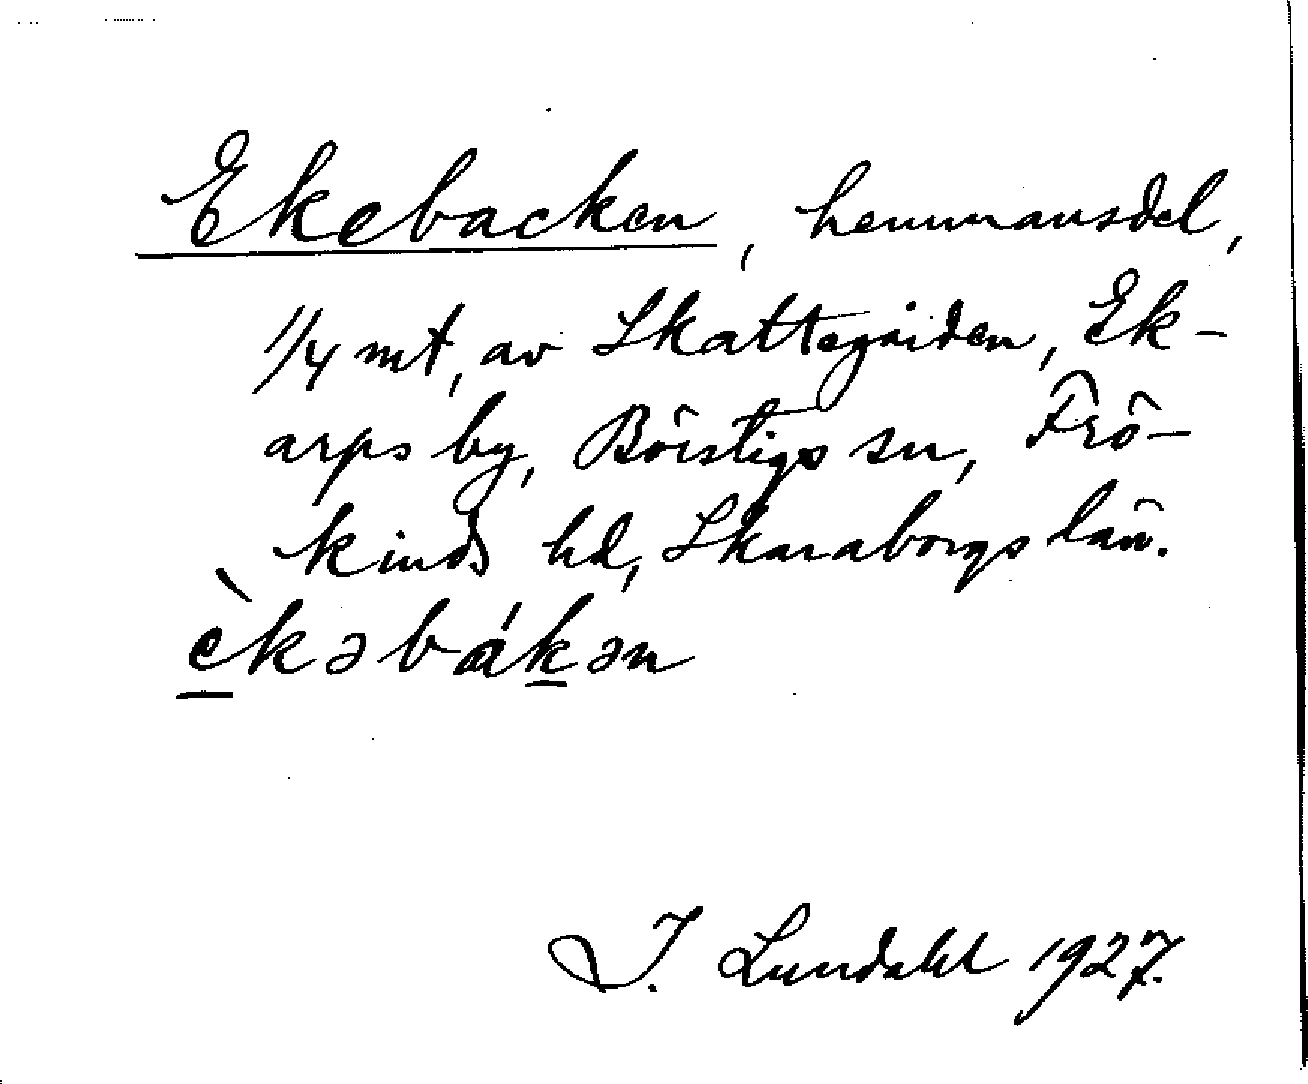 Ekebacken, hemmansdel,
1/4 mt, av Skattegården, Ek-
arps by, Börstigs sn, Frö-
kinds hd, Skaraborgs län.
èkəbákən
I. Lundahl 1927.